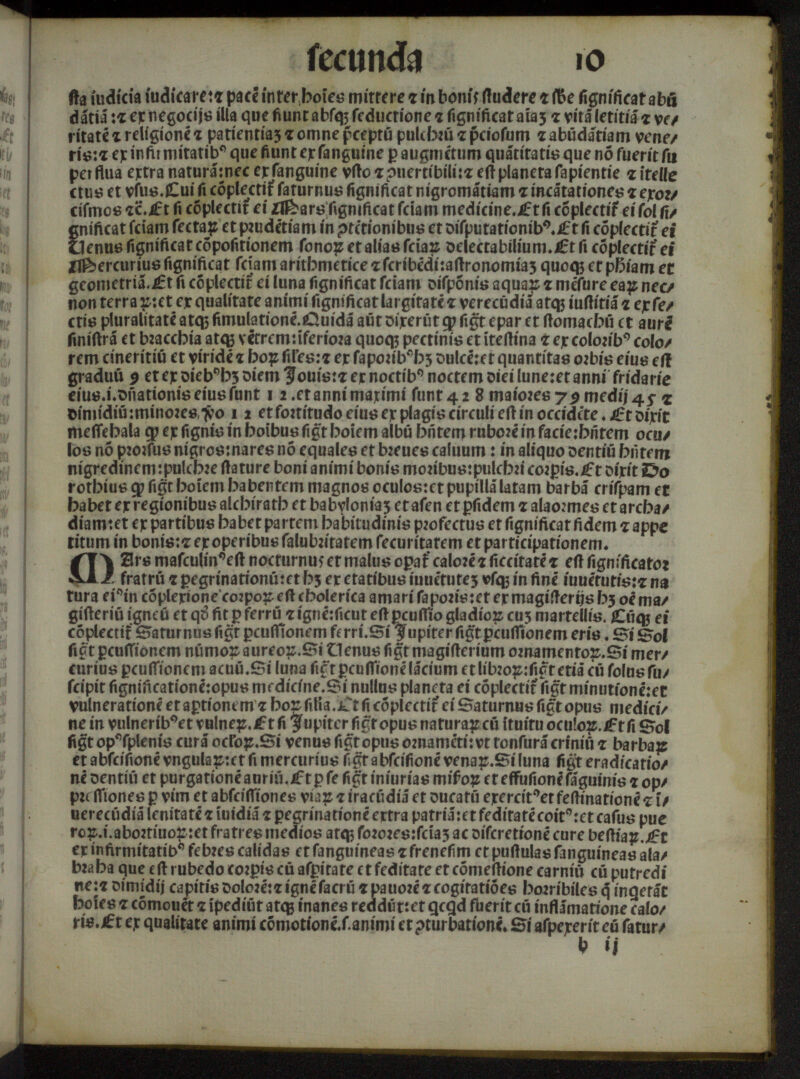 secunda 10
sta iudicia iudicare:⁊ pacē inter hoı̄es mittere ⁊ in bonis studere ⁊ spe significat abū
dātiā:⁊ ex negocijs illa que fiunt absqꝫ seductione ⁊ significat aīaꝫ ⁊ vitā letitiā ⁊ ve/
ritatē ⁊ religionē ⁊ patientiaꝫ ⁊ omne p̄ceptū pulchrū ⁊ p̄ciosum ⁊ abūdātiam vene/
ris:⁊ ex infirmitatibꝰ que fiunt ex sanguine p augmētum quātitatis que nō fuerit su
perflua extra naturā:nec ex sanguine vsto ⁊ ꝯuertibili:⁊ est planeta sapientie ⁊ ītelle
ctus et vsus. Cui si cōplectit̄ saturnus significat nigromātiam ⁊ incātationes ⁊ exor/
cismos ⁊c̄. Et si cōplectit̄ ei Mars significat sciam medicine. Et si cōplectit̄ ei sol si/
gnificat sciam sectaꝝ et prudētiam in ꝯtētionibus et disputationibꝰ. Et si cōplectit̄ ei
Uenus significat cōpositionem sonoꝝ et alias sciaꝝ delectabilium. Et si cōplectit̄ ei
Mercurius significat sciam arithmetice ⁊ scribēdi:astronomiaꝫ quoqꝫ et phīam et
geometriā. Et si cōplectit̄ ei luna significat sciam dispōnis aquaꝝ ⁊ mēsure eaꝝ nec/
non terraꝝ:et ex qualitate animi significat largitatē ⁊ verecūdiā atqꝫ iustitiā ⁊ ex se/
ctis pluralitatē atqꝫ simulationē. Quidā aūt dixerūt ꝙ sigt̄ epar et stomachū et aurē
sinistrā et bracchia atqꝫ vētrem:īferiora quoqꝫ pectinis et ītestina ⁊ ex coloribꝰ colo/
rem cineritiū et viridē ⁊ hoꝝ sil̄es:⁊ ex saporibꝰ hꝫ dulcē:et quantitas orbis eius est
graduū 9 et ex diebꝰ hꝫ diem Jouis:⁊ ex noctibꝰ noctem diei lune:et anni fridarie
eius.i.dn̄ationis eius sunt 12 .et anni maximi sunt 428 maiores 79 medij 45 ⁊
dimidiū:minores ꝟo 12 et fortitudo eius ex plagis circuli est in occidēte. Et dixit
messehala ꝙ ex signis in hoı̄bus sigt̄ hoı̄em albū hn̄tem ruborē in facie:hn̄tem ocu/
los nō prorsus nigros:nares nō equales et breues caluum: in aliquo dentiū hn̄tem
nigredinem:pulchre stature boni animi bonis moribus:pulchri corpis. Et dixit Do
rothius ꝙ sigt̄ hoı̄em habentem magnos oculos:et pupillā latam barbā crispam et
habet ex regionibus alchirath et babyloniaꝫ et afen et p̄sidem ⁊ alaormes et archa/
diam:et ex partibus habet partem habitudinis profectus et significat fidem ⁊ appe
titum in bonis:⁊ ex operibus salubritatem securitatem et participationem.
MArs masculinꝰ est nocturnus et malus opat̄ calorē ⁊ siccitatē ⁊ est significator
fratrū ⁊ pegrinationū:et hꝫ ex etatibus iuuētuteꝫ vsqꝫ in finē iuuētutis:⁊ na
tura eiꝰ in cōplexione corporꝝ est cholerica amari saporis:et ex magisterijs hꝫ oē ma/
gisterū igneū et qd̄ fit p ferrū ⁊ ignē:sicut est pcussio gladioꝝ cuꝫ martellis. Cūqꝫ ei
cōplectit̄ Saturnus sigt̄ pcussionem ferri. Si Jupiter sigt̄ pcussionem eris. Si Sol
sigt̄ pcussionem nūmoꝝ aureoꝝ. Si Uenus sigt̄ magisterium ornamentoꝝ. Si mer/
curius pcussionem acuū. Si luna sigt̄ pcussionē lācium et libroꝝ:sigt̄ etiā cū solus su/
scipit significationē:opus medicine. Si nullus planeta ei cōplectit̄ sigt̄ minutionē:et
vulnerationē et aptionem ⁊ hoꝝ silia. Et si cōplectit̄ ei Saturnus sigt̄ opus medici/
ne in vulneribꝰ et vulneꝝ. Et si Jupiter sigt̄ opus naturaꝝ cū ītuitu oculoꝝ. Et si Sol
sigt̄ opꝰ splenis curā ocl̄oꝝ. Si venus sigt̄ opus ornamēti:vt tonsurā criniū ⁊ barbaꝝ
et abscisionē vngulaꝝ:et si mercurius sigt̄ abscisionē venaꝝ. Si luna sigt̄ eradicatio/
nē dentiū et purgationē auriū. Et p se sigt̄ iniurias mis̄oꝝ et effusionē sāguinis ⁊ op/
pressiones p vim et abscissiones viaꝝ ⁊ iracūdiā et ducatū exercitꝰ et festinationē ⁊ ī/
uerecūdiā lenitatē ⁊ īuidiā ⁊ pegrinationē extra patriā:et feditatē coitꝰ:et casus pue
roꝝ.i.abortiuoꝝ:et fratres medios atqꝫ sorores:sciaꝫ ac discretionē cure bestiaꝝ. Et
ex infirmitatibꝰ febres calidas et sanguineas ⁊ frenesim et pustulas sanguineas ala/
hraba que est rubedo corpis cū aspitate et feditate et cōmestione carniū cū putredi
ne:⁊ dimidij capitis dolorē:⁊ ignē sacrū ⁊ pauorē ⁊ cogitatiōes horribiles q̄ inqetāt
hoı̄es ⁊ cōmouēt ⁊ īpediūt atqꝫ inanes reddūt:et qcqd fuerit cū inflāmatione calo/
ris. Et ex qualitate animi cōmotionē.s.animi et ꝯturbationē. Si aspexerit eū satur/
b ij